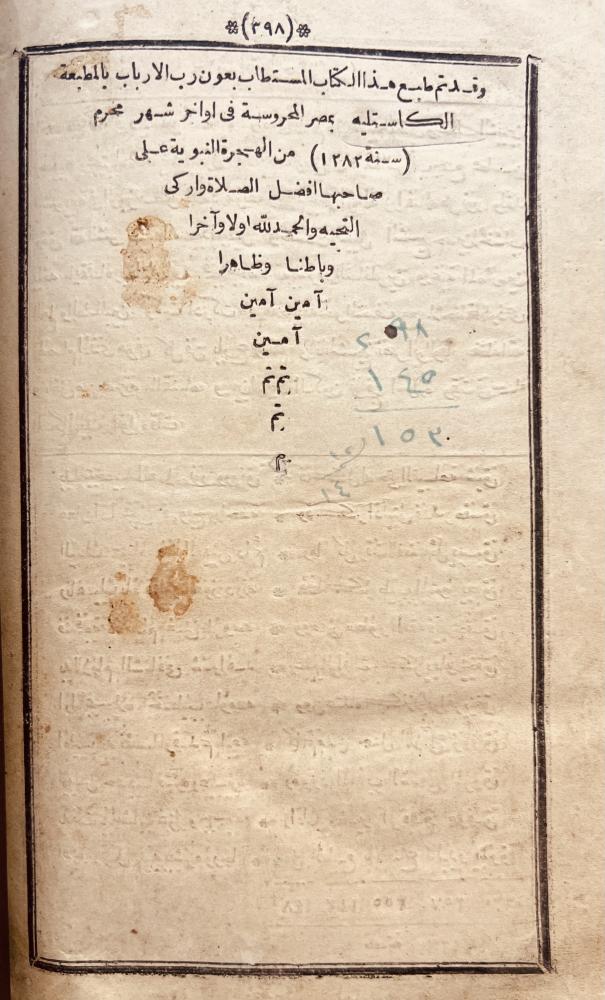 (٣٩٨)
وقد تم طبع هذا الكتاب المستطاب بعون رب الارباب بالمطبعة
الكاستليه بمصر المحروسة فى اواخر شهر محرم
(سنة ١٢٨٢) من الهجرة النبوية على
صاحبها افضل الصلاة وازكى
التحيه والحمد لله اولا وآخرا
وباطنا وظاهرا
آمين آمين
آمين
تم تم
تم
م
١٤٥
١٤